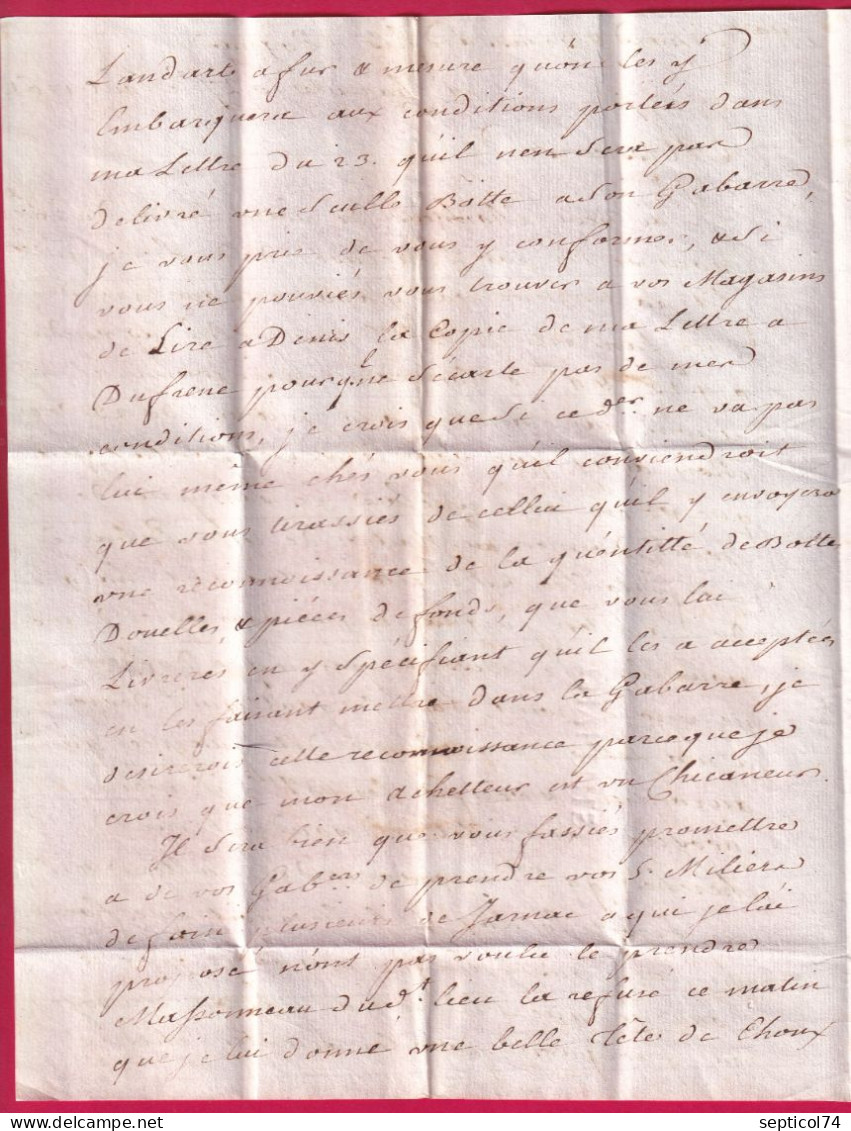 Landarts a fur & mesure qu'on les y
Embarquera aux conditions portées dans
ma Lettre du 23. qu'il n'en Sera pas
delivré une Seulle Botte a Son Gabarre,
je vous prie de vous y conformer, & Si
vous ne pouviés vous trouver a vos Magasins
de Lire a Denis la Copie de ma Lettre a
Dufrene pourqu'il ne S'écarte pas de mes
conditions, je crois que Si ce der. ne va pas
lui même chés vous qu'il conviendroit
que vous tirassiés de celluy qu'il y envoyera
une reconnoissance de la quentitté de Botte
Douelles, & piéces de fonds, que vous lui
Livreres en y Spécifiant qu'il les a acceptées
en les faisant mettre dans la Gabarre, je
desirerois cette reconnoissance parce que je
crois que mon achetteur est un Chicaneur.
Il Sera bien que vous fassiés promettre
a de vos Gabers de prendre vos 5. Miliers
de foin, plusieurs de Jarnac a qui je l'ai
proposé n'ont pas voulu le prendre
Massonneau dudt. lieu la refusé ce matin
que je lui donné une belle Tête de Choux
septicol74